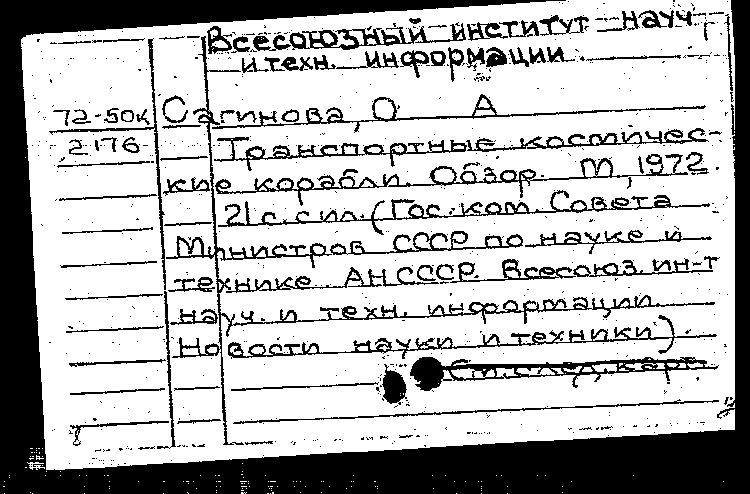 Всесоюзный институт науч
и техн. информации.
72-50к Сагинова, О А
2176 Транспортные космичес-
кие корабли. Обзор. М, 1972.
21 с. с ил. (Гос. ком. Совета
Министров СССР по науке и
технике АН СССР. Всесоюз. ин-т
науч. и техн. информации.
Новости науки и техники).
См. след. карт.